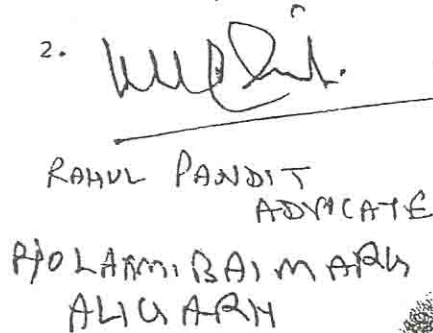 2.
RAHUL PANDIT
ADVOCATE
R/O LAXMI BAI MARG
ALIGARH